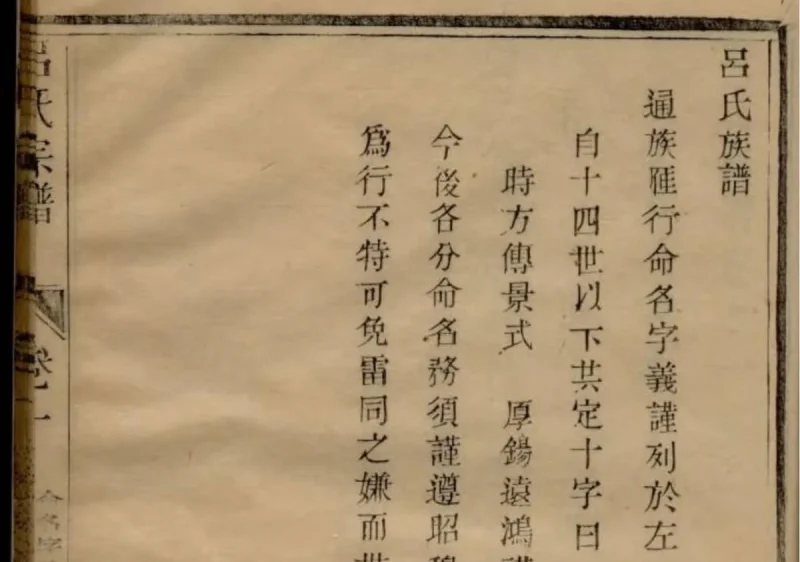 呂氏族譜
通族匯行命名字義謹列於左
自十四世以下共定十字曰
時方傳景式 厚錫遠鴻
今後各分命名務須謹遵昭穆
為行不特可免雷同之嫌而世
呂氏宗譜 卷一
命名字